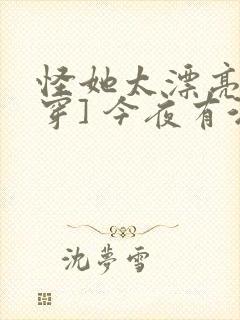 怪她太漂亮
穿]今夜有
沈夢雪